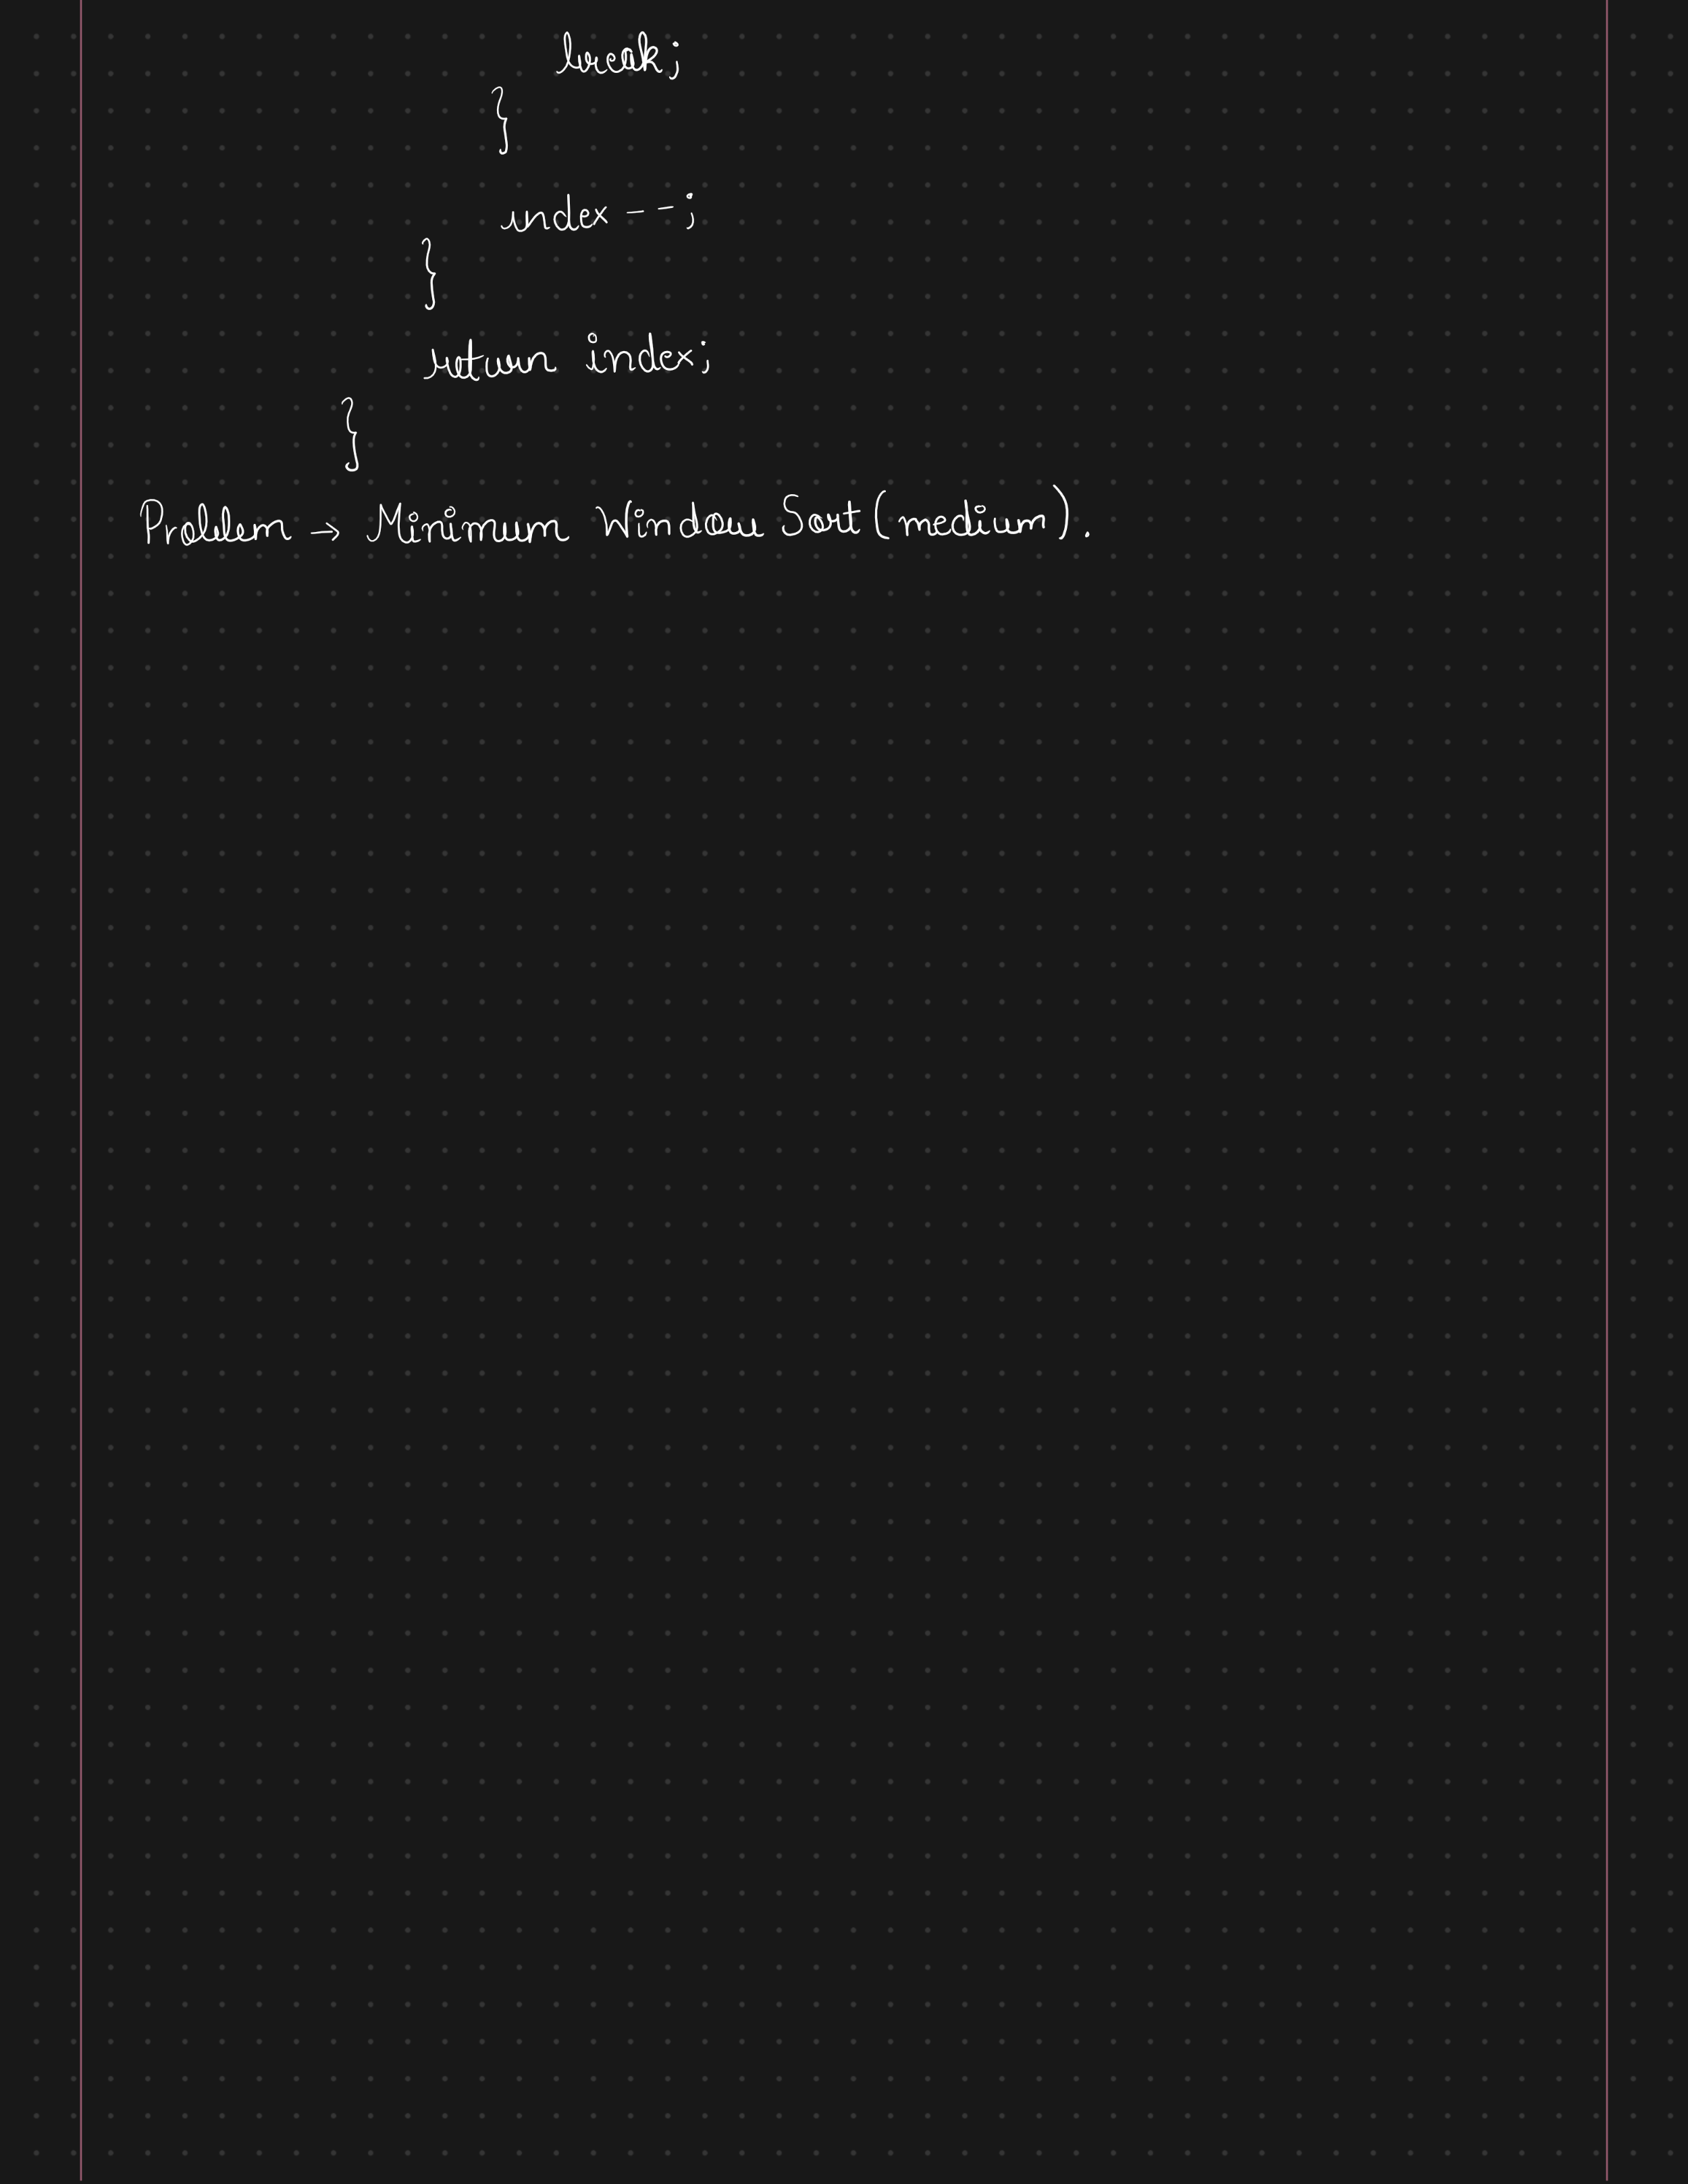 break;
}
index--;
}
return index;
}
Problem → Minimum Window Sort (medium).